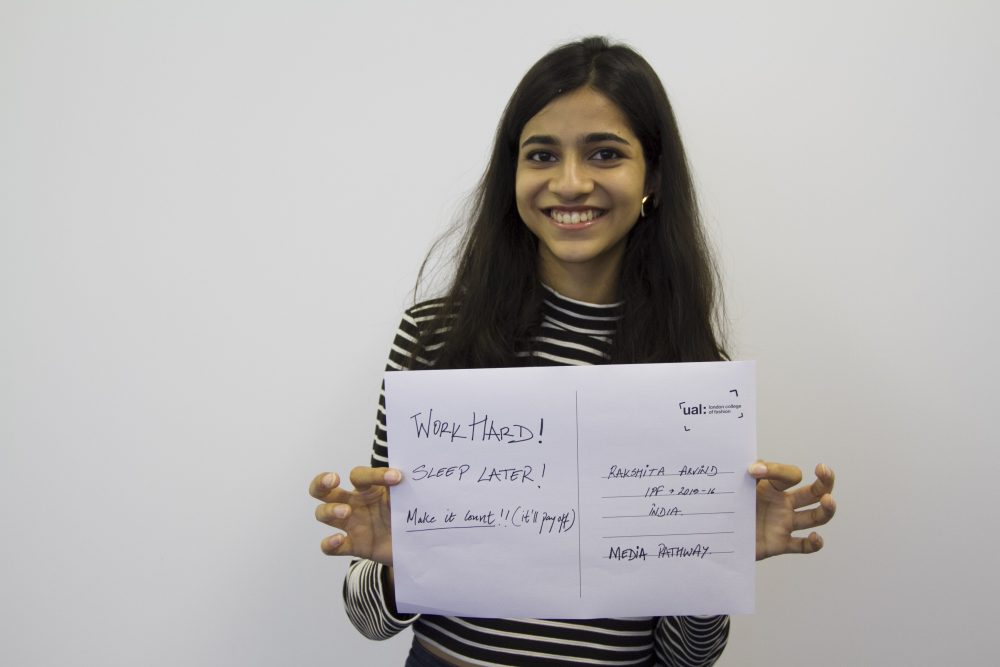 WORK HARD!
SLEEP LATER!
Make it count!! (it'll pay off)
ual: london college
of fashion
RAKSHITA ARVIND
IPF → 2015-16
INDIA.
MEDIA PATHWAY.